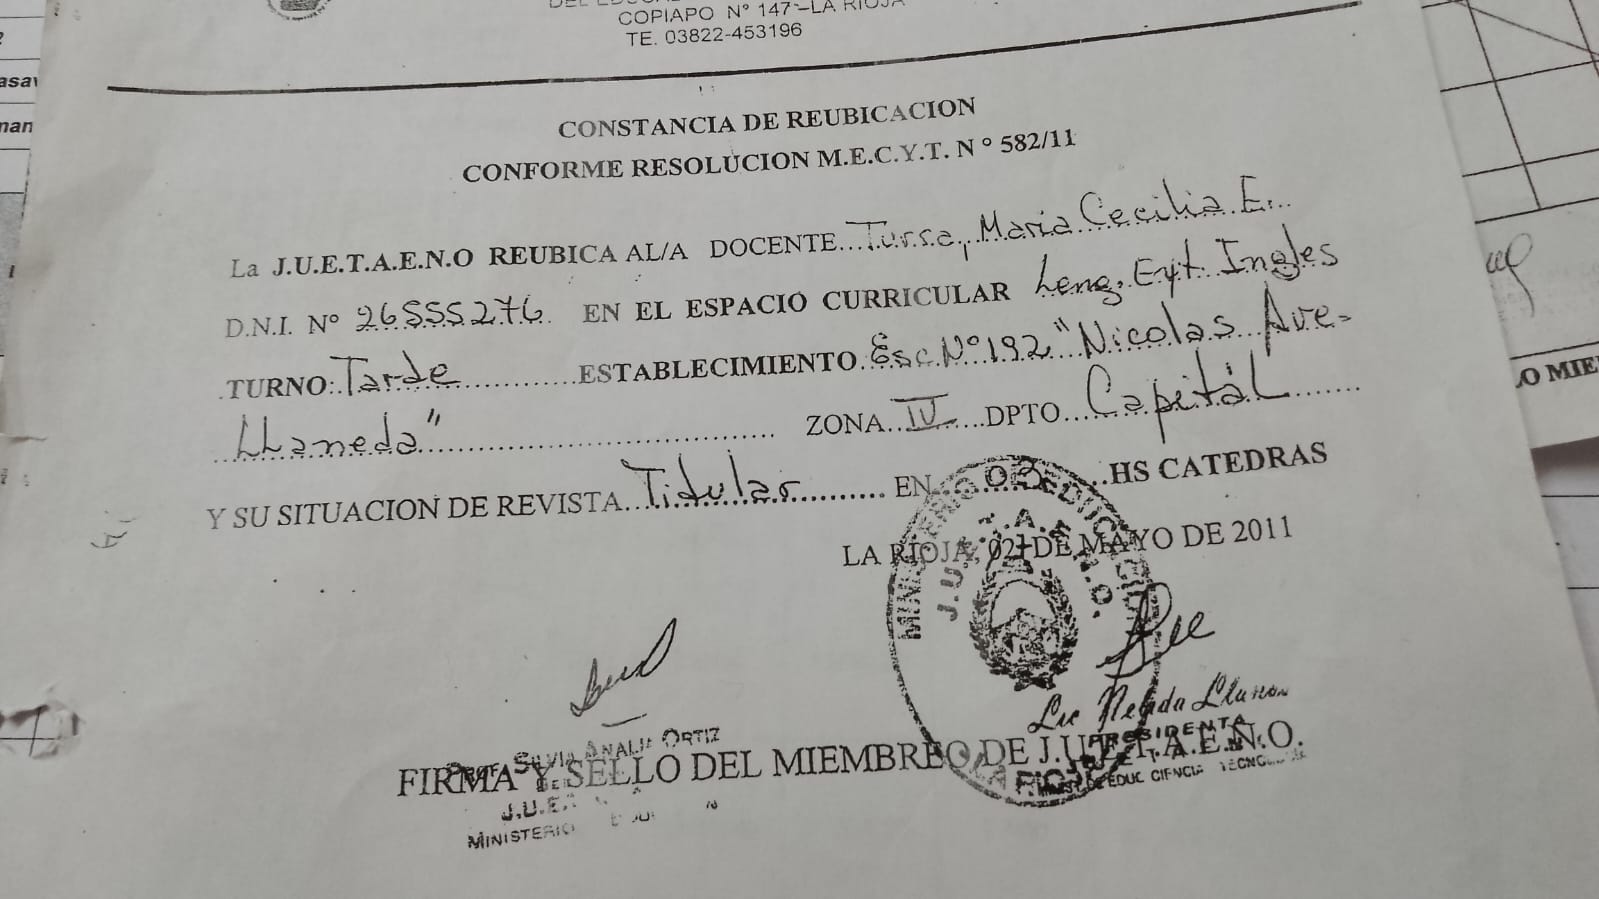 COPIAPO N° 147-LA RIOJA
TE. 03822-453196
CONSTANCIA DE REUBICACION
CONFORME RESOLUCION M.E.C.Y.T. N° 582/11
La J.U.E.T.A.E.N.O REUBICA AL/A DOCENTE...Tursa, Maria Cecilia E...
D.N.I. N° 26555276 EN EL ESPACIO CURRICULAR Leng. Ext. Ingles
TURNO: Tarde ESTABLECIMIENTO Esc. N° 192 "Nicolas Ave-
LLaneda" ZONA IV DPTO Capitál
Y SU SITUACION DE REVISTA Titular EN 03 HS CATEDRAS
LA RIOJA, 02 DE MAYO DE 2011
MINISTERIO DE EDUC
J.U.E.T.A.E.N.O.
LA RIOJA
PROF. SILVIA ANALIA ORTIZ
Lic Nelida
PRESIDENTA
FIRMA Y SELLO DEL MIEMBREO DE J.U.E.T.A.E.N.O.
MINIST. DE EDUC. CIENCIA
MINISTERIO
O MIE